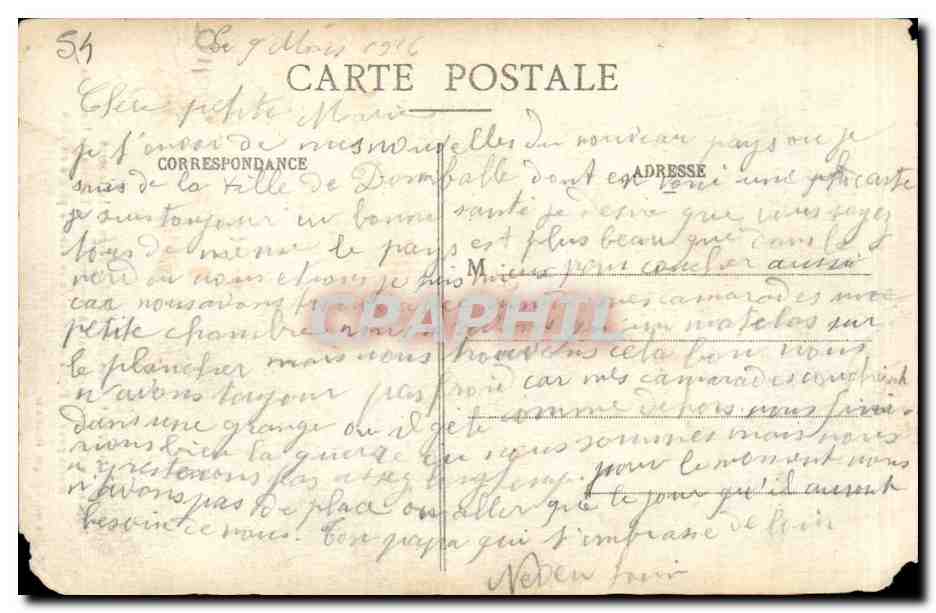 54
Le 9 Mars 1916
CARTE POSTALE
Chere petite Marie
je t'envoi de mes nouvelles du nouveau pays ou je
CORRESPONDANCE
ADRESSE
suis de la ville de Domballe dont en voici une carte
je suis toujour en bonne santé je desire que vous soyez
tous de même le pays est plus beau que dans le
M
ou nous etions je suis mieux pour coucher aussi
car nous avons mes camarades une
petite chambre matelas sur
le plancher mais nous trouvons cela bon nous
n'avons toujour pas froid car mes camarades couchent
dans une grange ou il gele comme dehors nous fini
rions bien la guerre ou nous sommes mais nous
n'y resterons pas assez longtemp. pour le moment nous
n'avons pas de place ou aller que le jour qu'il auront
besoin de nous. Ton papa qui t'embrasse de loin
CPAPHIL